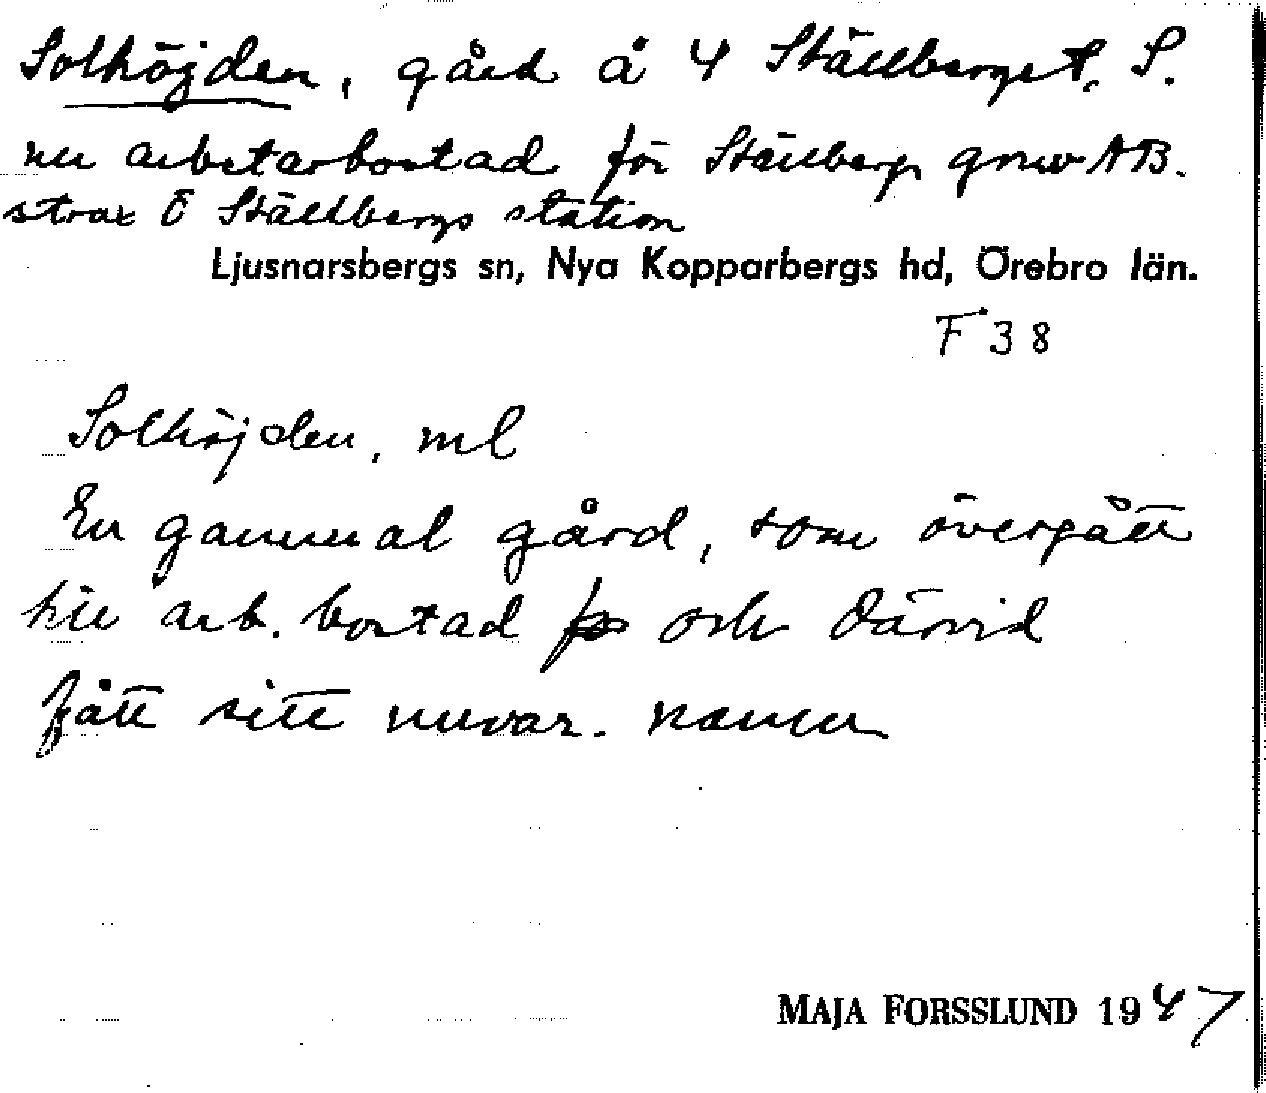 Solhöjden, gård å 4 Ställberget, S.
nu arbetarbostad för Ställbergs gruv AB.
strax Ö Ställbergs station
Ljusnarsbergs sn, Nya Kopparbergs hd, Örebro län.
F 38
Solhöjden, ml
En gammal gård, som övergått
till arb. bostad och därvid
fått sitt nuvar. namn
MAJA FORSSLUND 1947